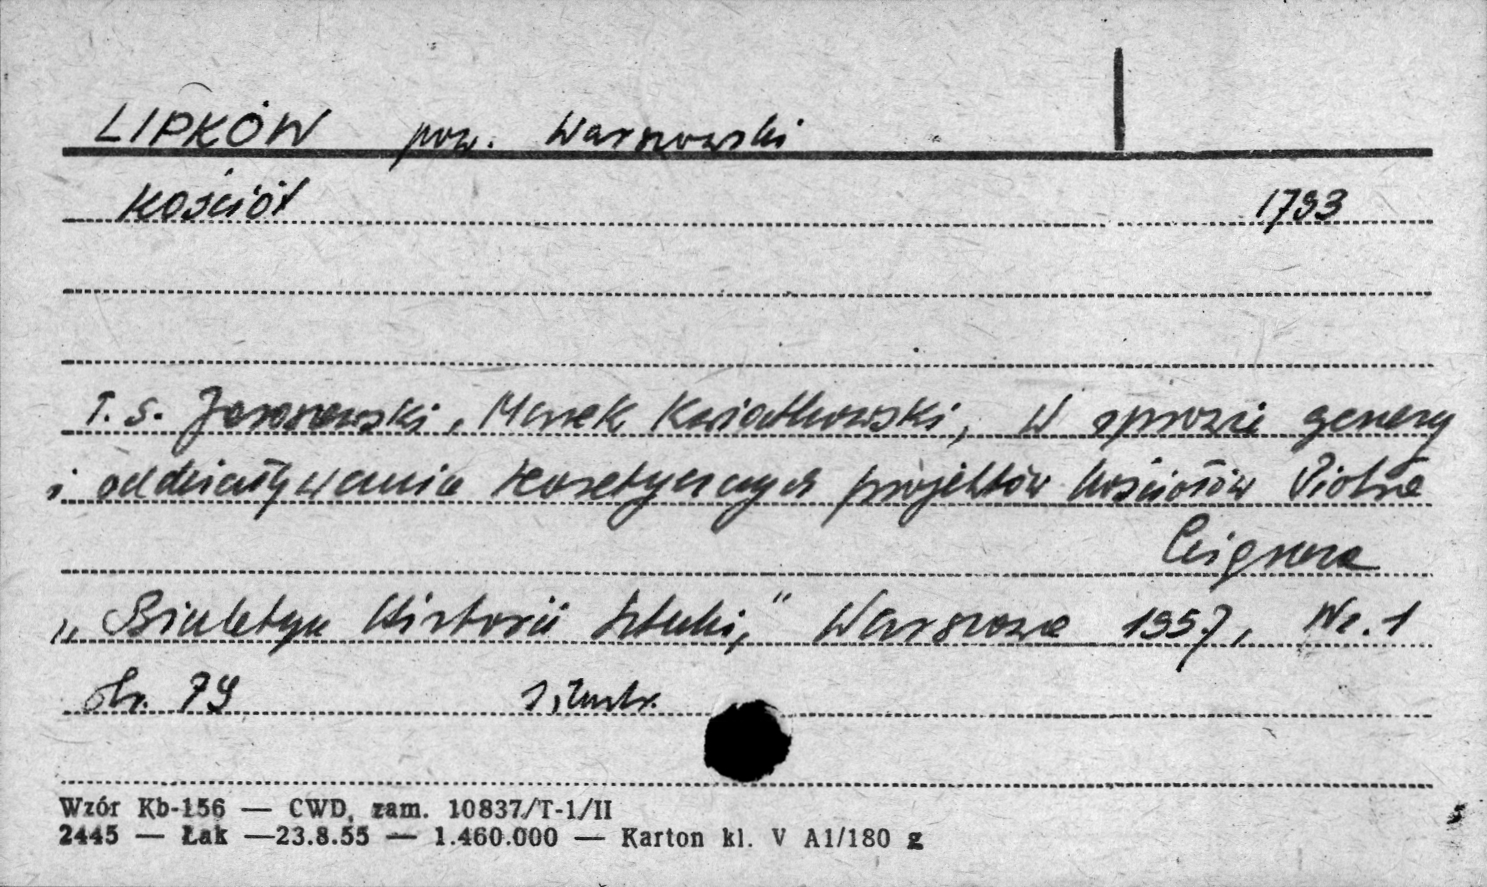 LIPKÓW pow. Warszawski
Kościół 1793
T. S. Jaroszewski, Marek Kwiatkowski, W sprawie genezy
i oddziaływania teoretycznych projektów kościołów Piotra
Aignera
"Biuletyn Historii Sztuki," Warszawa 1957, Nr. 1
str. 79 ilustr.
Wzór Kb-156 — CWD, zam. 10837/T-1/II
2445 — Łak —23.8.55 — 1.460.000 — Karton kl. V A1/180 g